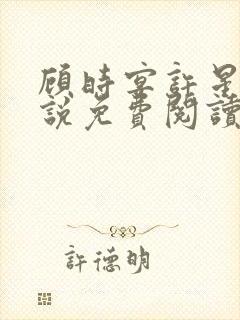 顾時宴許星
說免費閱讀
許德明